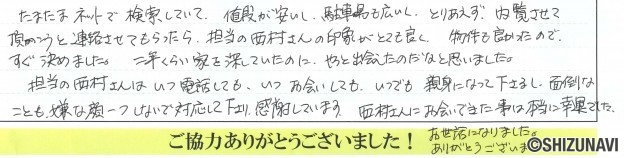 たまたまネットで検索していて、値段が安いし、駐車場も広いし、とりあえず、内覧させて
頂こうと連絡させてもらったら、担当の西村さんの印象がとても良く、物件も良かったので、
すぐ決めました。二年くらい家を探していたのに、やっと出会えたのだなと思いました。
担当の西村さんはいつ電話しても、いつお会いしても、いつでも親身になって下さるし、面倒な
ことも嫌な顔一つしないで対応して下さり、感謝しています。西村さんにお会いできた事は本当に幸運でした。
お世話になりました。
ありがとうございま
ご協力ありがとうございました!
©SHIZUNAVI